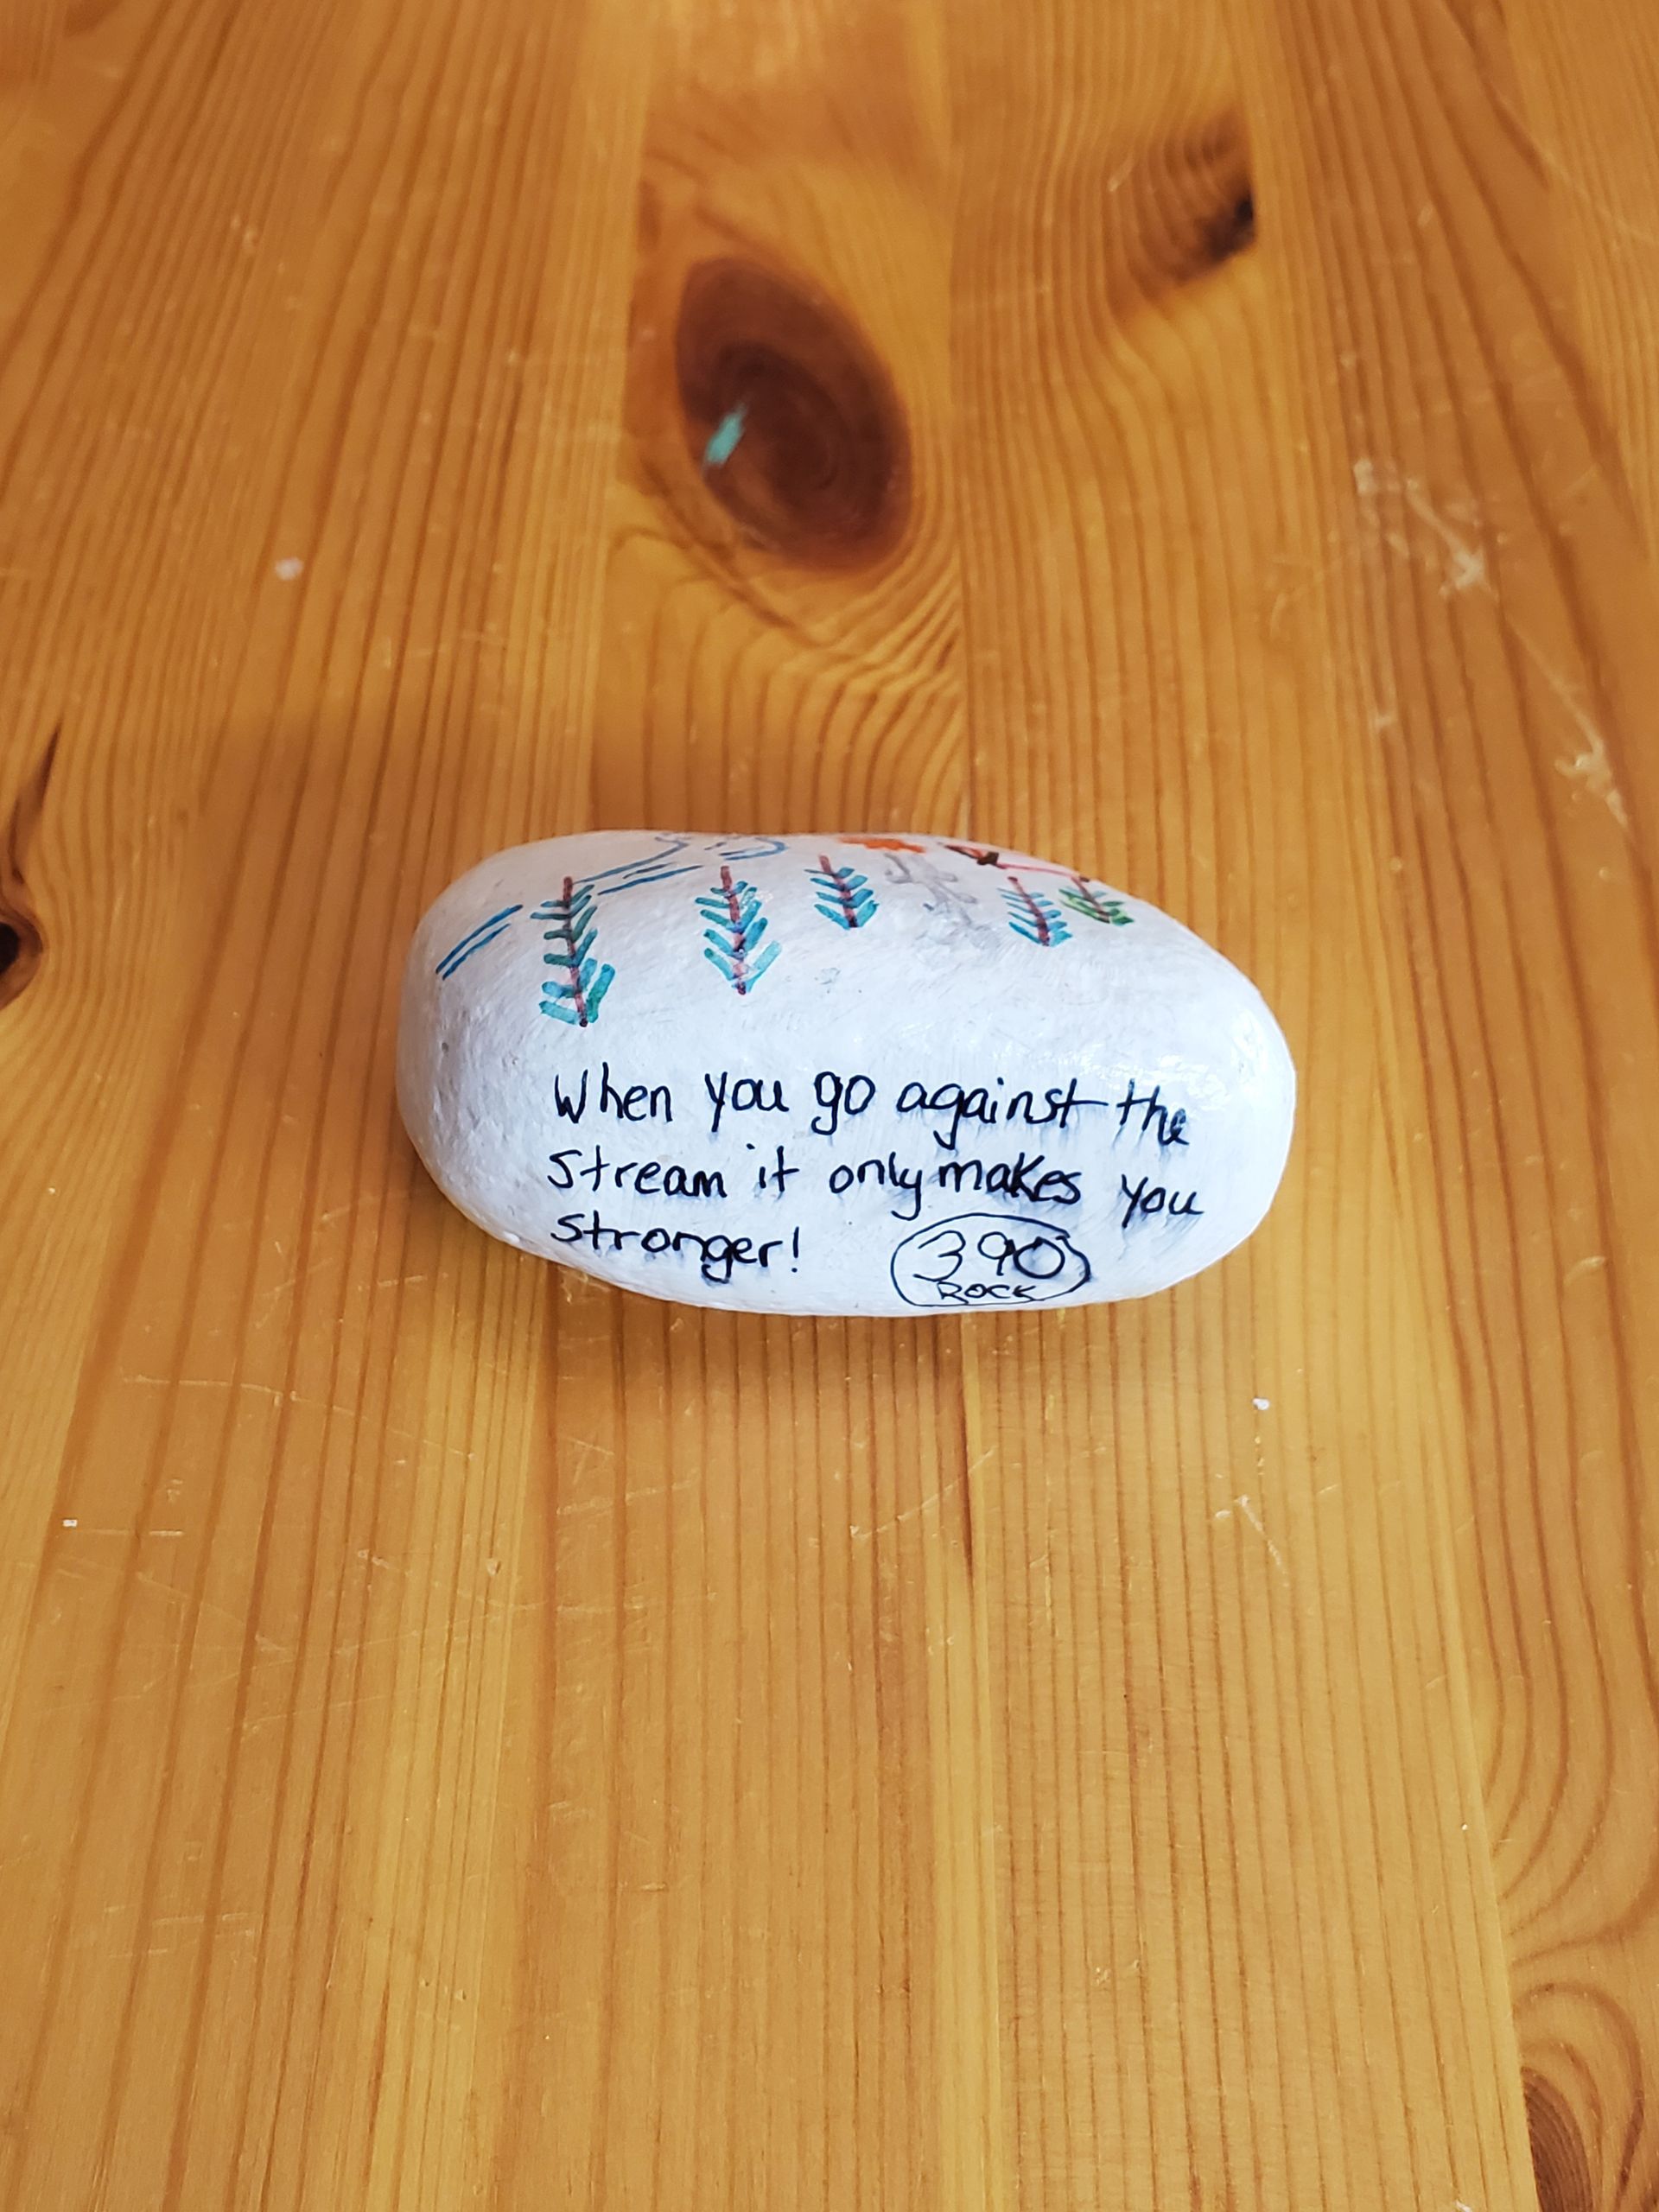 When you go against the
stream it only makes you
stronger!
390
ROCK